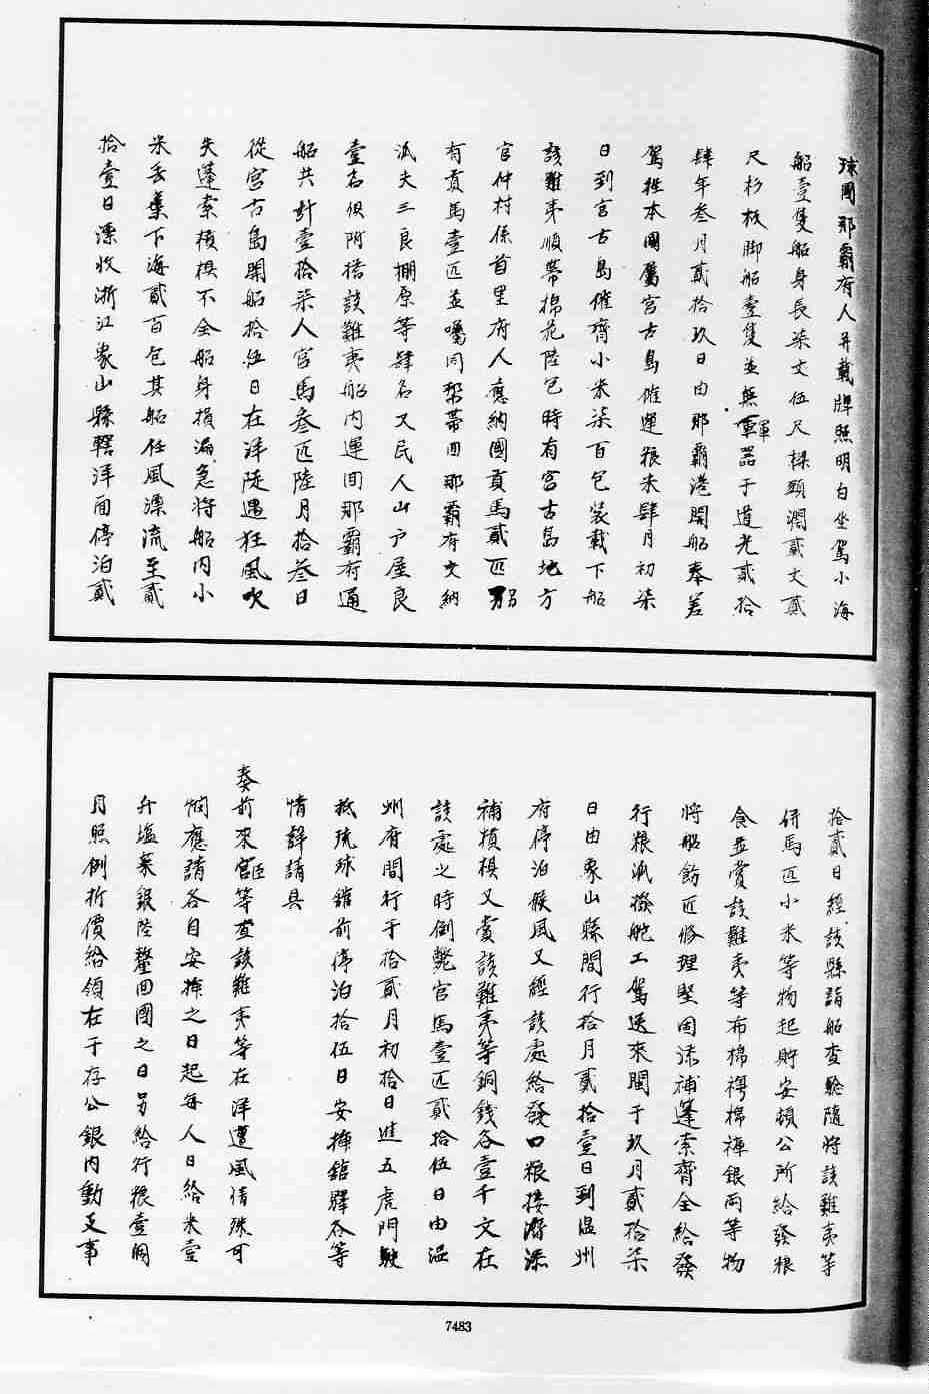 球國那霸府人并載牌照明白坐駕小海
船壹隻船身長柒丈伍尺樑頭濶貳丈貳
尺杉板脚船壹隻並無軍軍器于道光貳拾
肆年叁月貳拾玖日由那霸港開船奉差
駕往本國屬宮古島催運粮米肆月初柒
日到宮古島催齊小米柒百包裝載下船
該難夷順帶棉花陸包時有宮古島地方
官仲村係首里府人應納國貢馬貳匹另另
有貢馬壹匹並囑同幫帶回那霸府交納
派夫三良棚原等肆名又民人山戶屋良
壹名俱附搭該難夷船內運回那霸府通
船共計壹拾柒人官馬叁匹陸月拾叁日
從宮古島開船拾伍日在洋陡遇狂風吹
失蓬索槓椇不全船身損漏急將船內小
米丢棄下海貳百包其船任風漂流至貳
拾壹日漂收浙江象山縣轄洋面停泊貳
拾貳日經該縣詣船查驗隨將該難夷等
併馬匹小米等物起貯安頓公所給發粮
食並賞該難夷等布棉襖棉褲銀兩等物
將船飭匠修理堅固添補蓬索齊全給發
行粮派撥舵工駕送來閩于玖月貳拾柒
日由象山縣開行拾月貳拾壹日到温州
府停泊候風又經該處給發口粮接濟添
補槓椇又賞該難夷等銅錢各壹千文在
該處之時倒斃官馬壹匹貳拾伍日由温
州府開行于拾貳月初拾日進五虎門駛
抵琉球舘前停泊拾伍日安揷舘驛各等
情詳請具
奏前來宮臣等查該難夷等在洋遭風情殊可
憫應請各自安揷之日起每人日給米壹
升塩菜銀陸釐回國之日另給行粮壹個
月照例折價給領在于存公銀內動支事
7483